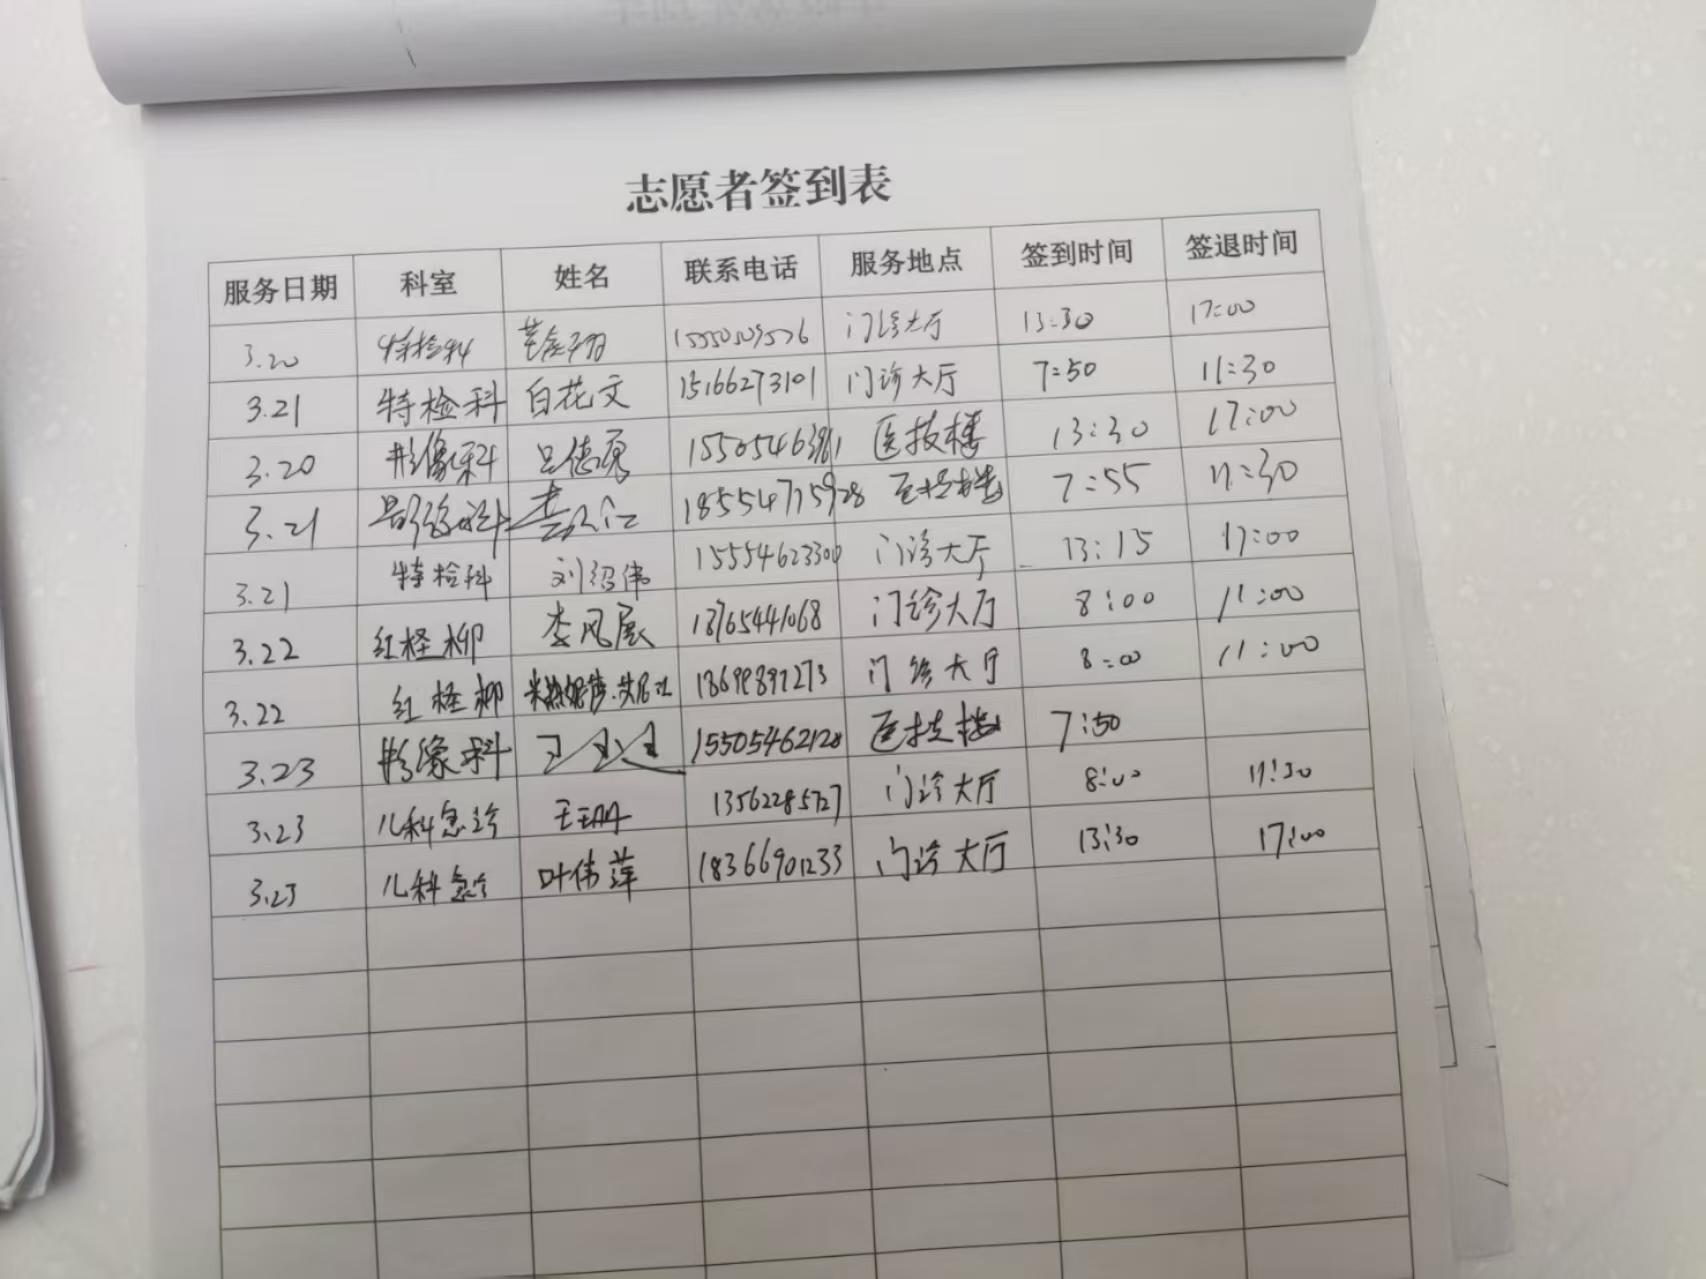 志愿者签到表
服务日期 科室 姓名 联系电话 服务地点 签到时间 签退时间
3.20 特检科 门诊大厅 13:30 17:00
3.21 特检科 白花文 15166273101 门诊大厅 7:50 11:30
3.20 影像科 吕德勇 医技楼 13:30 17:00
3.21 影像科 18554715928 医技楼 7:55 11:30
3.21 特检科 刘绍伟 15554623300 门诊大厅 13:15 17:00
3.22 红柽柳 李凤展 门诊大厅 8:00 11:00
3.22 红柽柳 门诊大厅 8:00 11:00
3.23 影像科 15505462128 医技楼 7:50
3.23 儿科急诊 13562285727 门诊大厅 8:00 11:30
3.23 儿科急诊 叶伟萍 18366901233 门诊大厅 13:30 17:00